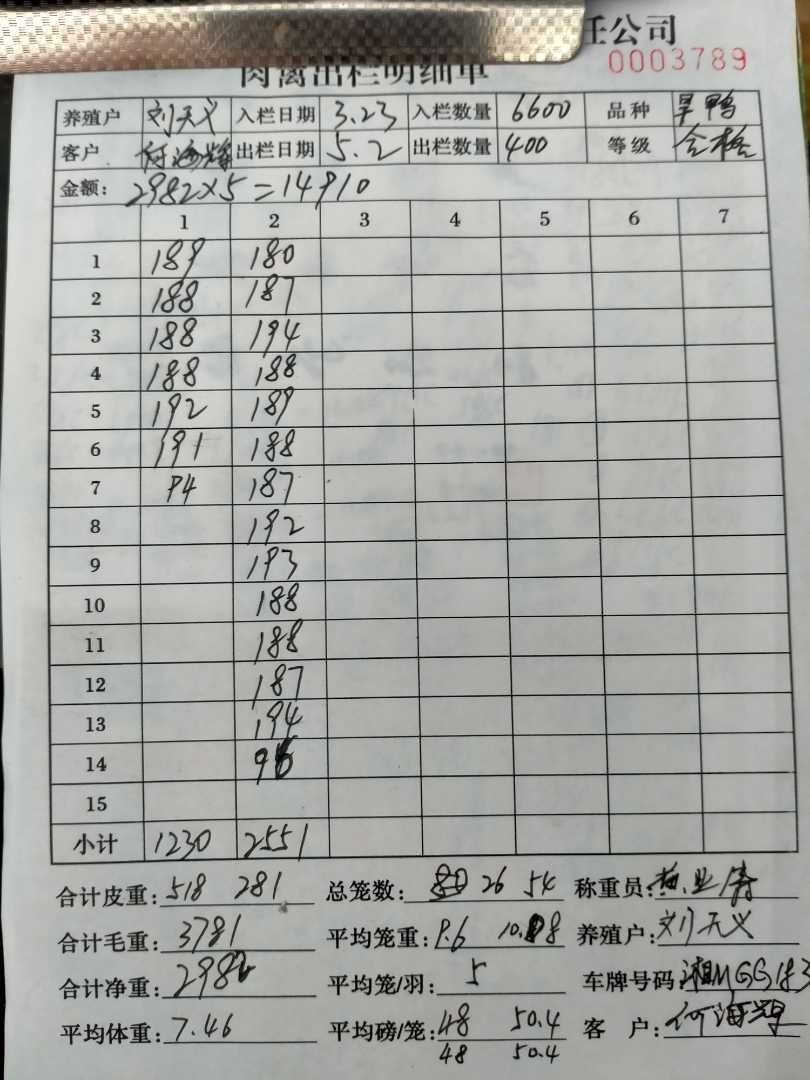 任公司
0003789
肉禽出栏明细单
养殖户 刘天义 入栏日期 3.23 入栏数量 6600 品种 旱鸭
客户 何海辉 出栏日期 5.2 出栏数量 400 等级 合格
金额: 2982×5=14910
1 2 3 4 5 6 7
1 189 180
2 188 187
3 188 194
4 188 188
5 192 189
6 191 188
7 94 187
8 192
9 193
10 188
11 188
12 187
13 194
14 96
15
小计 1230 2551
合计皮重: 518 281 总笼数: 26 54 称重员:
合计毛重: 3781 平均笼重: 9.6 10.8 养殖户: 刘天义
合计净重: 2982 平均笼/羽: 5 车牌号码: 湘MGG
平均体重: 7.46 平均磅/笼: 48 50.4 客 户: 何海辉
48 50.4